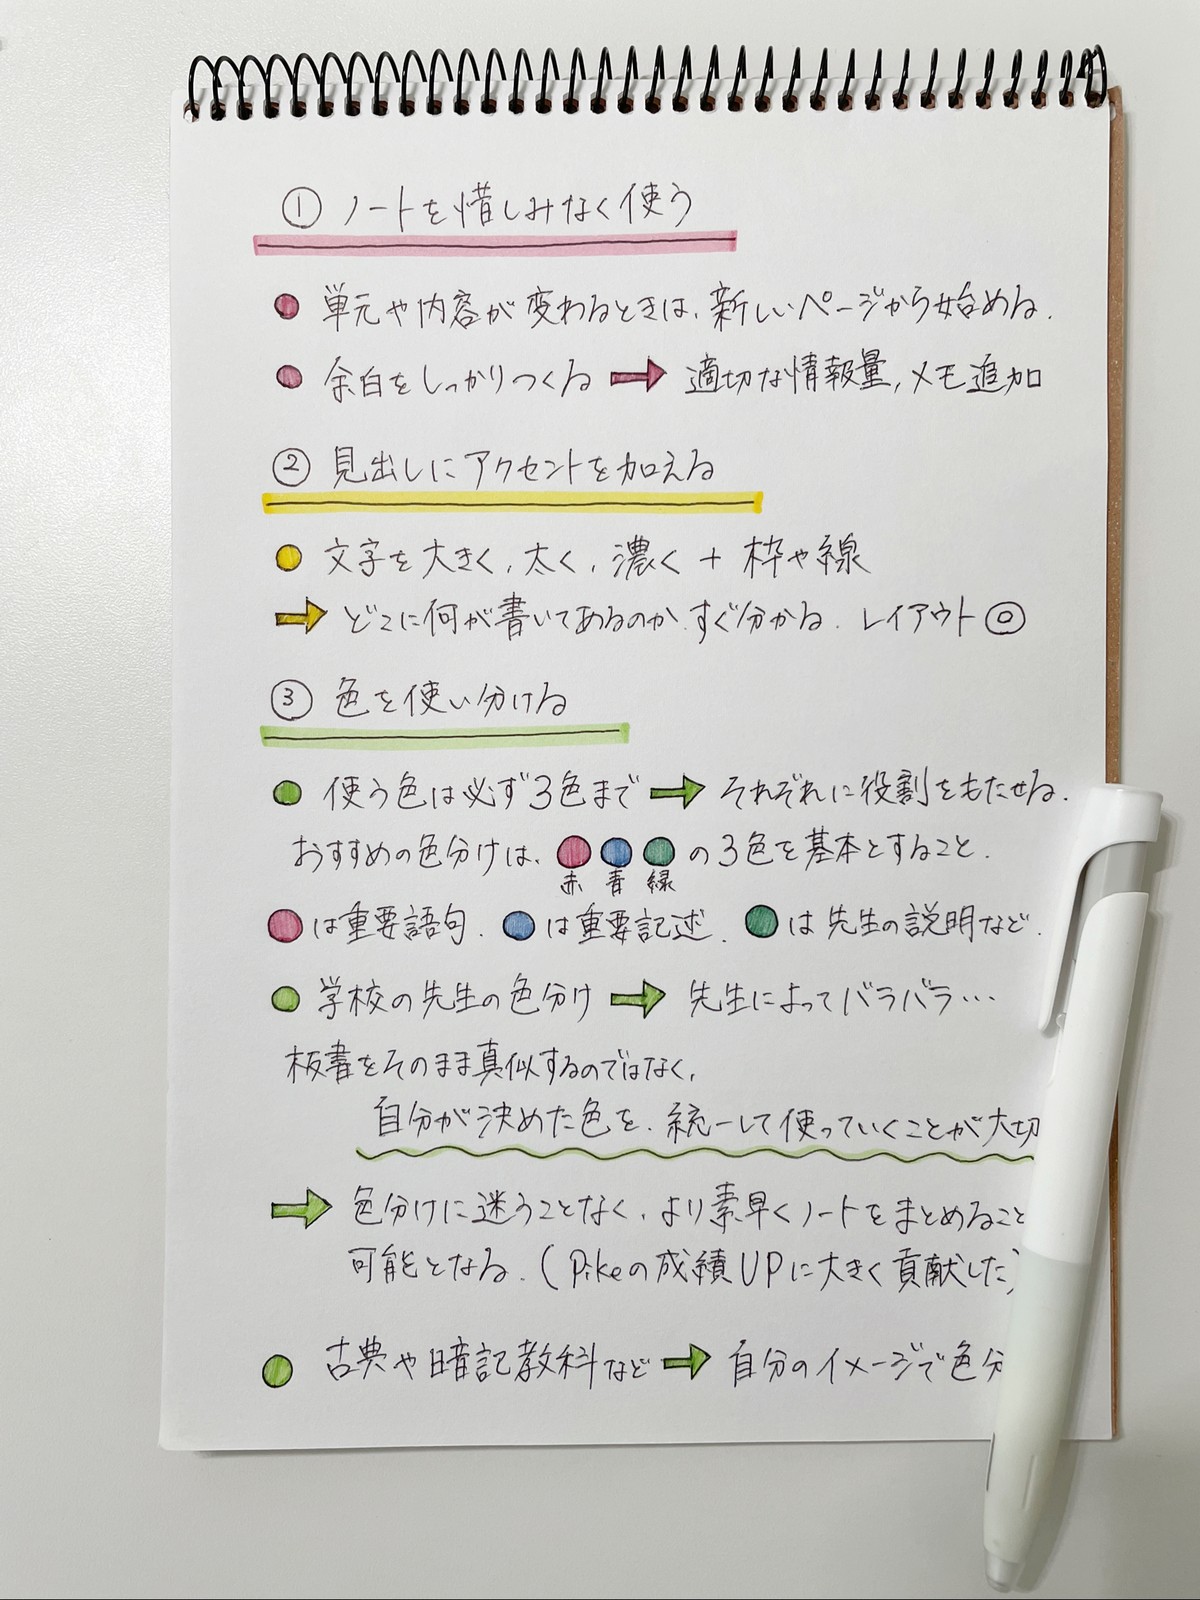 ① ノートを惜しみなく使う
● 単元や内容が変わるときは、新しいページから始める.
● 余白をしっかりつくる → 適切な情報量, メモ追加
② 見出しにアクセントを加える
● 文字を大きく, 太く, 濃く + 枠や線
→ どこに何が書いてあるのか、すぐ分かる. レイアウト◎
③ 色を使い分ける
● 使う色は必ず3色まで → それぞれに役割をもたせる.
おすすめの色分けは、● ● ● の3色を基本とすること.
赤 青 緑
● は重要語句. ● は重要記述. ● は先生の説明など.
● 学校の先生の色分け → 先生によってバラバラ…
板書をそのまま真似するのではなく,
自分が決めた色を、統一して使っていくことが大切
→ 色分けに迷うことなく、より素早くノートをまとめること
可能となる. (Pikeの成績UPに大きく貢献した)
● 古典や暗記教科など → 自分のイメージで色分